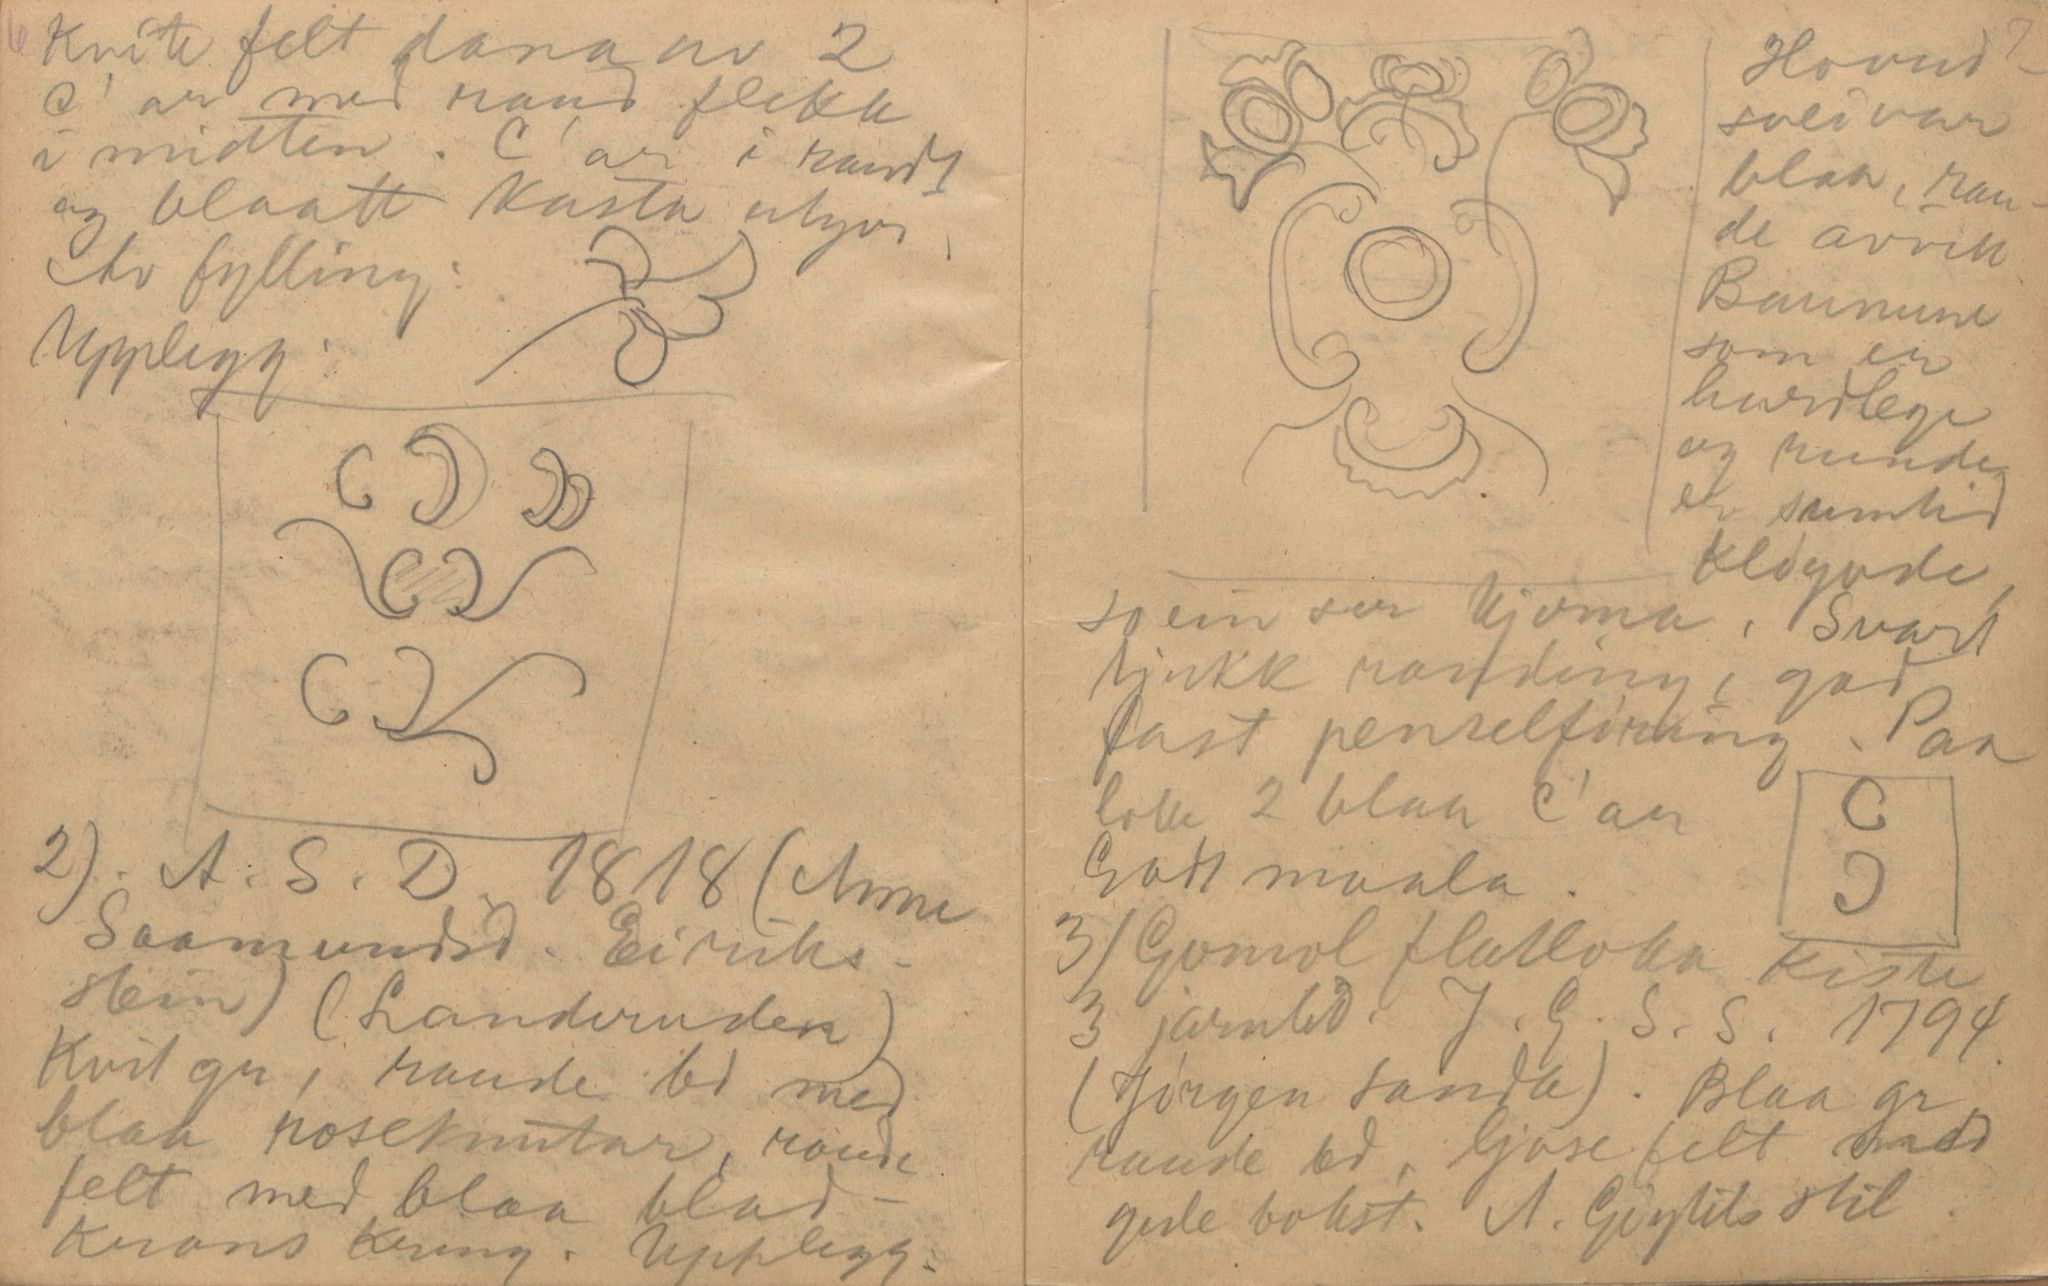 6
Kvite felt dana av 2
C'ar med raud flekk
i midten. C'ar i raudt
og blaatt kasta utyvi
Av fylling:
Upplegg:
2). A. S. D. 1818 (Anne
Saamundsd. Eiriks-
stein) (Landeruden)
Kvit gr, raude bd med
blaa roseknutar, raude
felt med blaa blad-
krans kring. Upplegg:
7
Hovud-
svei var
blaa, rau-
de avvik
Baunune
som er
hardlege
og runde
er sumtid
kløyvde,
so ein ser kjerna. Svart
tjukk randing, god
fast penselføring. Paa
loke 2 blaa C'ar
Godt maala.
3) Gamol flatloka kiste
3 jarnbd. J. G. S. S. 1794
(Jørgen Sanda). Blaa gr
raude bd, ljose felt med
gule bokst. A. Gøytils stil.